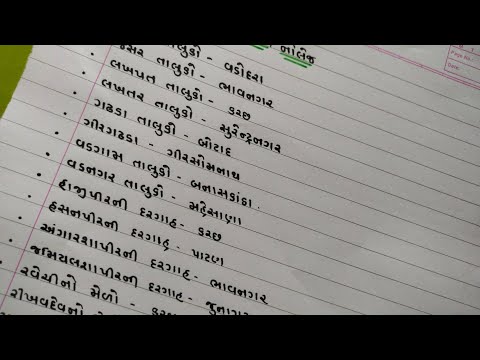 નોલેજ
તાલુકો - વડોદરા
• જેસર તાલુકો - ભાવનગર
• લખપત તાલુકો - કચ્છ
• લખતર તાલુકો - સુરેન્દ્રનગર
• ગઢડા તાલુકો - બોટાદ
• ગીરગઢડા - ગીરસોમનાથ
• વડગામ તાલુકો - બનાસકાંઠા
• વડનગર તાલુકો - મહેસાણા
• હાજીપીરની દરગાહ - કચ્છ
• હસનપીરની દરગાહ - પાટણ
• અંગારશાપીરની દરગાહ - ભાવનગર
• જમીયલશાપીરની દરગાહ - જુનાગઢ
• રવેચીનો મેળો - કચ્છ
રીખવદેવનો
Page No.
Date